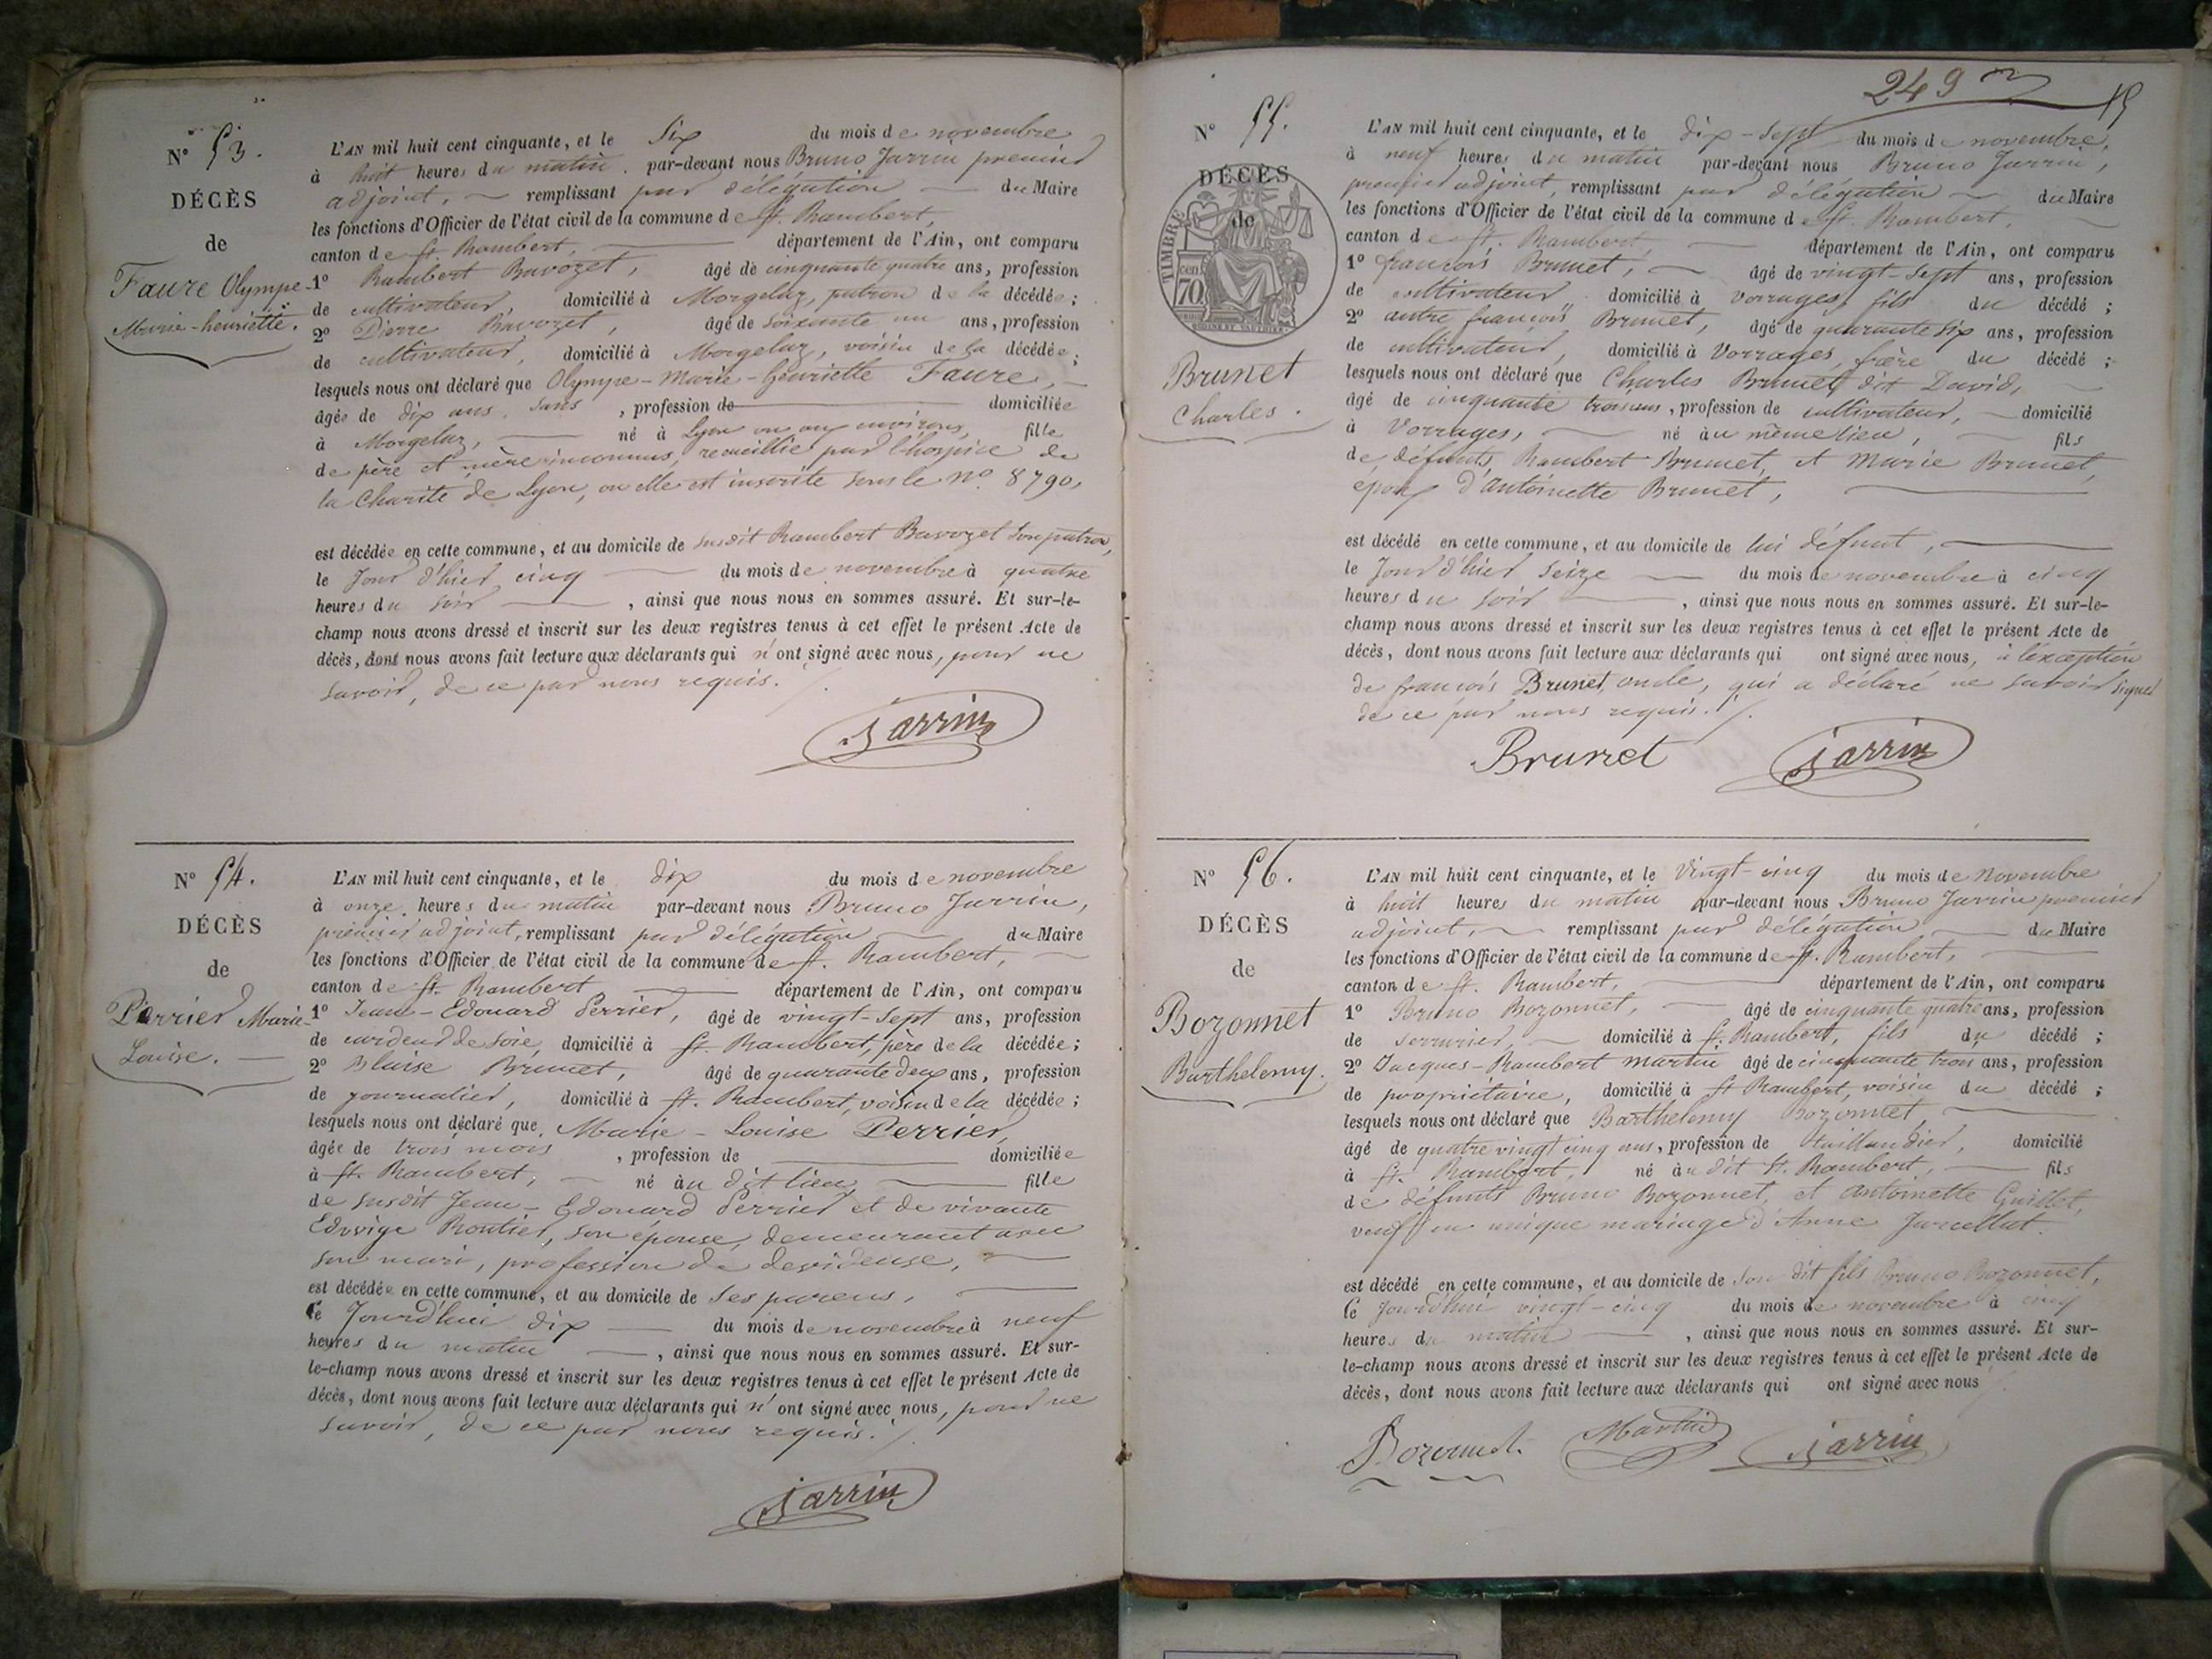 N° 53.
DÉCÈS
de
Faure Olympe-
Marie-henriette.
L'AN mil huit cent cinquante, et le Six du mois de novembre
à huit heures du matin par-devant nous Bruno Jarrin premier
adjoint, remplissant par délégation du Maire
les fonctions d'Officier de l'état civil de la commune de St. Rambert,
canton de St. Rambert, département de l'Ain, ont comparu
1° Rambert Bavozet, âgé de cinquante quatre ans, profession
de cultivateur, domicilié à Morgelaz, patron de la décédée;
2° Pierre Bavozet, âgé de soixante un ans, profession
de cultivateur, domicilié à Morgelaz, voisin de la décédée;
lesquels nous ont déclaré que Olympe-Marie-henriette Faure,
âgée de dix ans, sans, profession de domiciliée
à Morgelaz, né à Lyon ou aux environs, fille
de père et mère inconnus, recueillie par l'hospice de
la Charité de Lyon, ou elle est inscrite sous le N° 8790,
est décédée en cette commune, et au domicile de susdit Rambert Bavozet son patron,
le Jour d'hier cinq du mois de novembre à quatre
heures du soir, ainsi que nous nous en sommes assuré. Et sur-le-
champ nous avons dressé et inscrit sur les deux registres tenus à cet effet le présent Acte de
décès, dont nous avons fait lecture aux déclarants qui n'ont signé avec nous, pour ne
savoir, de ce par nous requis.
Jarrin
N° 54.
DÉCÈS
de
Perrier Marie-
Louise.
L'AN mil huit cent cinquante, et le dix du mois de novembre
à onze heures du matin par-devant nous Bruno Jarrin,
premier adjoint, remplissant par délégation du Maire
les fonctions d'Officier de l'état civil de la commune de St. Rambert,
canton de St. Rambert département de l'Ain, ont comparu
1° Jean-Edouard Perrier, âgé de vingt-sept ans, profession
de cardeur de soie, domicilié à St. Rambert, père de la décédée;
2° Blaise Brunet, âgé de quarante deux ans, profession
de journalier, domicilié à St. Rambert, voisin de la décédée;
lesquels nous ont déclaré que Marie-Louise Perrier,
âgée de trois mois, profession de domiciliée
à St. Rambert, né au dit lieu fille
de susdit Jean-Edouard Perrier et de vivante
Edwige Routier, son épouse, demeurant avec
son mari, profession de devideuse,
est décédée en cette commune, et au domicile de ses parens,
le Jourd'hui dix du mois de novembre à neuf
heures du matin, ainsi que nous nous en sommes assuré. Et sur-
le-champ nous avons dressé et inscrit sur les deux registres tenus à cet effet le présent Acte de
décès, dont nous avons fait lecture aux déclarants qui n'ont signé avec nous, pour ne
savoir, de ce par nous requis.
Jarrin
249
N° 55.
DÉCÈS
de
TIMBRE
cen
70
Brunet
Charles.
L'AN mil huit cent cinquante, et le dix-sept du mois de novembre,
à neuf heures du matin par-devant nous Bruno Jarrin,
premier adjoint, remplissant par délégation du Maire
les fonctions d'Officier de l'état civil de la commune de St. Rambert,
canton de St. Rambert, département de l'Ain, ont comparu
1° françois Brunet, âgé de vingt-sept ans, profession
de cultivateur domicilié à Vorrages, fils du décédé;
2° autre françois Brunet, âgé de quarante six ans, profession
de cultivateur, domicilié à Vorrages, frère du décédé;
lesquels nous ont déclaré que Charles Brunet dit David,
âgé de cinquante trois ans, profession de cultivateur, domicilié
à Vorrages, né au même lieu, fils
de défunts Rambert Brunet, et Marie Brunet,
époux d'antoinette Brunet,
est décédé en cette commune, et au domicile de lui défunt,
le Jour d'hier seize du mois de novembre à cinq
heures du soir, ainsi que nous nous en sommes assuré. Et sur-le-
champ nous avons dressé et inscrit sur les deux registres tenus à cet effet le présent Acte de
décès, dont nous avons fait lecture aux déclarants qui ont signé avec nous, à l'exception
de françois Brunet, oncle, qui a déclaré ne savoir signer
de ce par nous requis.
Brunet Jarrin
N° 56.
DÉCÈS
de
Bozonnet
Barthelemy.
L'AN mil huit cent cinquante, et le Vingt-cinq du mois de Novembre
à huit heures du matin par-devant nous Bruno Jarrin premier
adjoint, remplissant par délégation du Maire
les fonctions d'Officier de l'état civil de la commune de St. Rambert,
canton de St. Rambert, département de l'Ain, ont comparu
1° Bruno Bozonnet, âgé de cinquante quatre ans, profession
de serrurier, domicilié à St. Rambert, fils du décédé;
2° Jacques-Rambert Martin âgé de cinquante trois ans, profession
de propriétaire, domicilié à St Rambert, voisin du décédé;
lesquels nous ont déclaré que Barthelemy Bozonnet,
âgé de quatre vingt cinq ans, profession de taillandier, domicilié
à St. Rambert, né au dit St. Rambert, fils
de défunts Bruno Bozonnet, et Antoinette Guillet,
veuf en unique mariage d'Anne Jarcellat.
est décédé en cette commune, et au domicile de son dit fils Bruno Bozonnet,
le Jourd'hui vingt-cinq du mois de novembre à cinq
heures du matin, ainsi que nous nous en sommes assuré. Et sur-
le-champ nous avons dressé et inscrit sur les deux registres tenus à cet effet le présent Acte de
décès, dont nous avons fait lecture aux déclarants qui ont signé avec nous
Bozonnet. Martin Jarrin